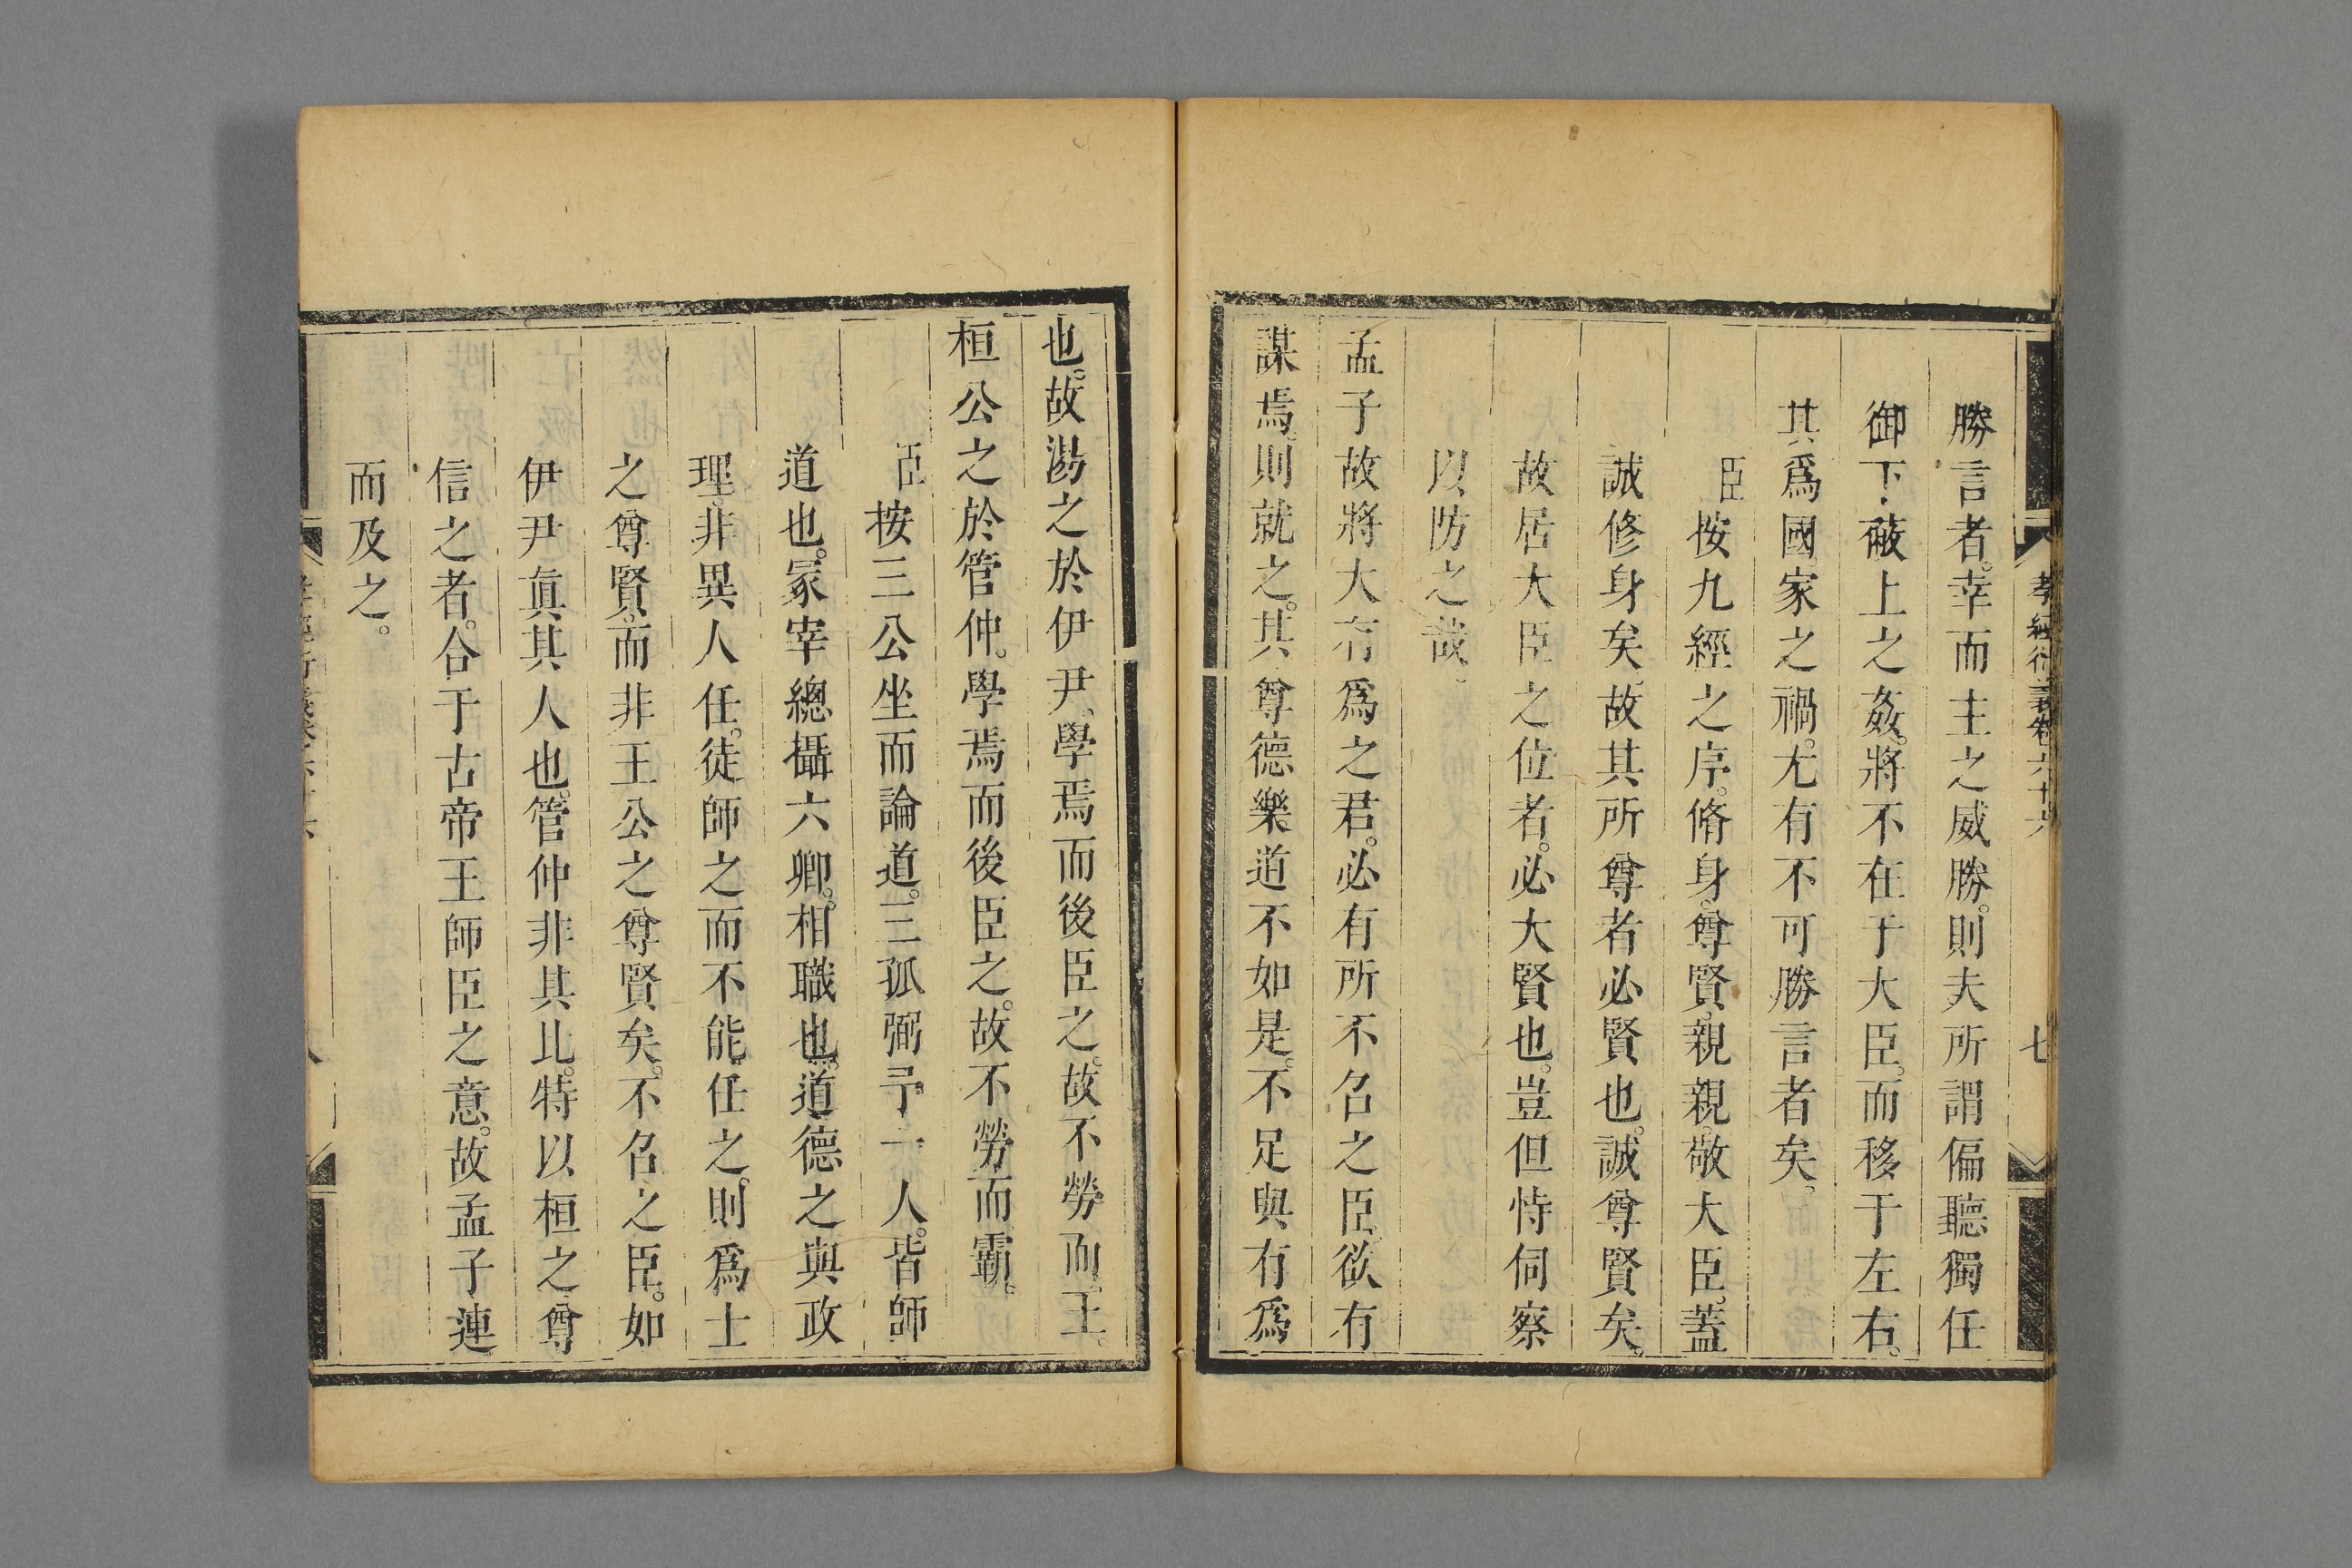 孝經衍義卷六十六
七
勝言者。幸而主之威勝。則夫所謂偏聽獨任
御下蔽上之姦。將不在于大臣。而移于左右。
其爲國家之禍。尤有不可勝言者矣。
臣按九經之序。脩身。尊賢。親親。敬大臣。蓋
誠修身矣。故其所尊者必賢也。誠尊賢矣。
故居大臣之位者。必大賢也。豈但恃伺察
以防之哉。
孟子故將大有爲之君。必有所不名之臣。欲有
謀焉。則就之。其尊德樂道不如是。不足與有爲
也。故湯之於伊尹。學焉而後臣之。故不勞而王。
桓公之於管仲。學焉而後臣之。故不勞而霸。
臣按三公坐而論道。三孤弼予一人。皆師
道也。冡宰總攝六卿。相職也。道德之與政
理。非異人任。徒師之而不能任之。則爲士
之尊賢。而非王公之尊賢矣。不名之臣。如
伊尹眞其人也。管仲非其比。特以桓之尊
信之者。合于古帝王師臣之意。故孟子連
而及之。